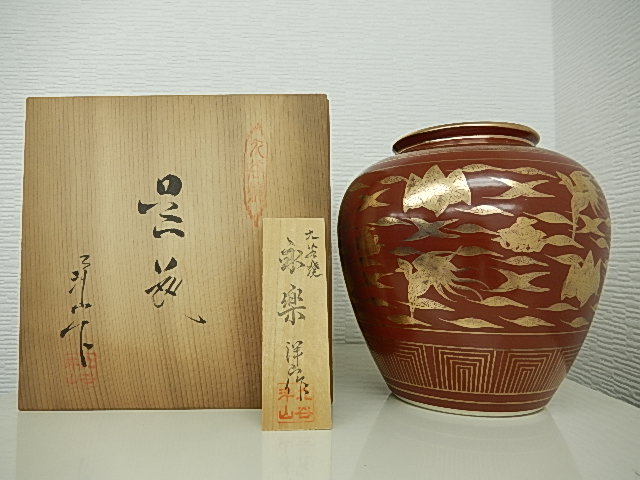 花瓶
洋山作
九谷焼
永楽
洋山作
九谷
洋山